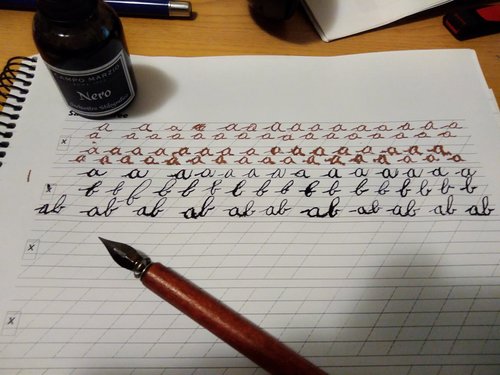 CAMPO MARZIO
Nero
a a a a a a a a a a a a a a a a
a a a a a a a a a a a a a a a a a a
x
a a a a a a a a a a a a a a a a a a
a a a a a a a a a a a a a a a a a a a a
a a a a a a a a a a a a a a
x
b b b b b b b b b b b b b b b b b b
ab ab ab ab ab ab ab ab ab ab ab
x
x